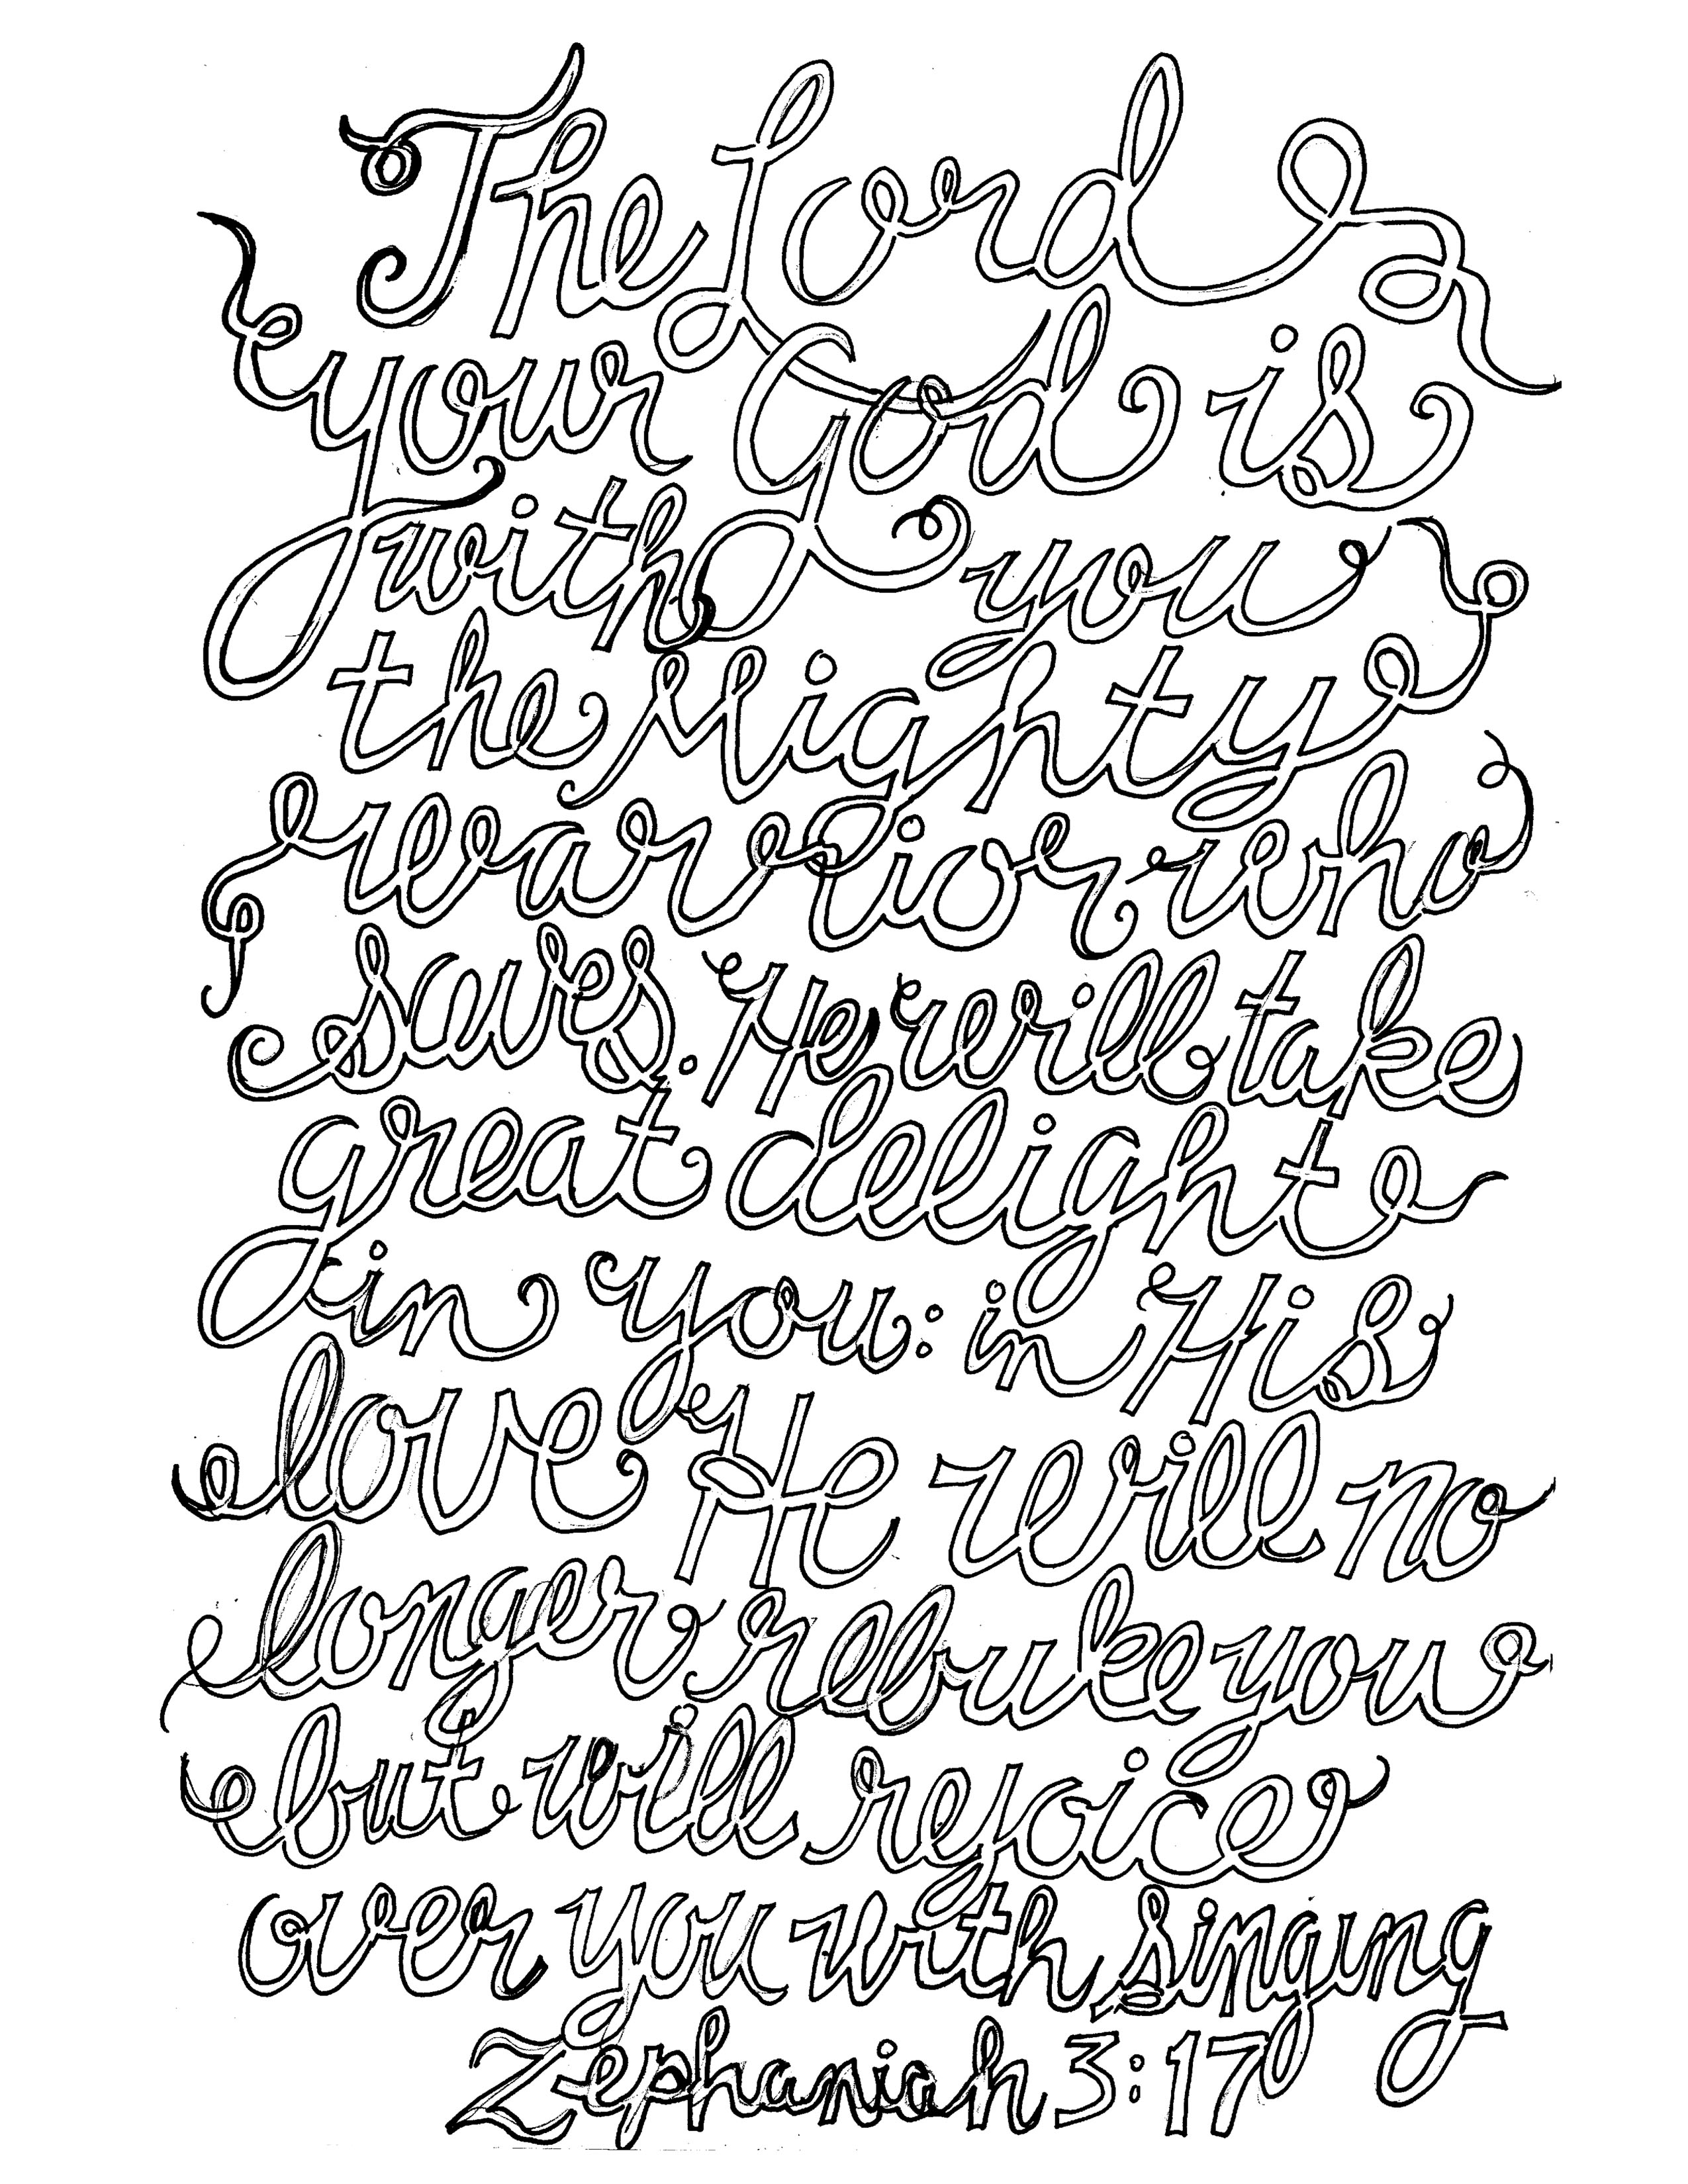 The Lord
your God is
with you
the Mighty
warrior who
saves. He will take
great delight
in you: in His
love He will no
longer rebuke you
but will rejoice
over you with singing
Zephaniah 3:17